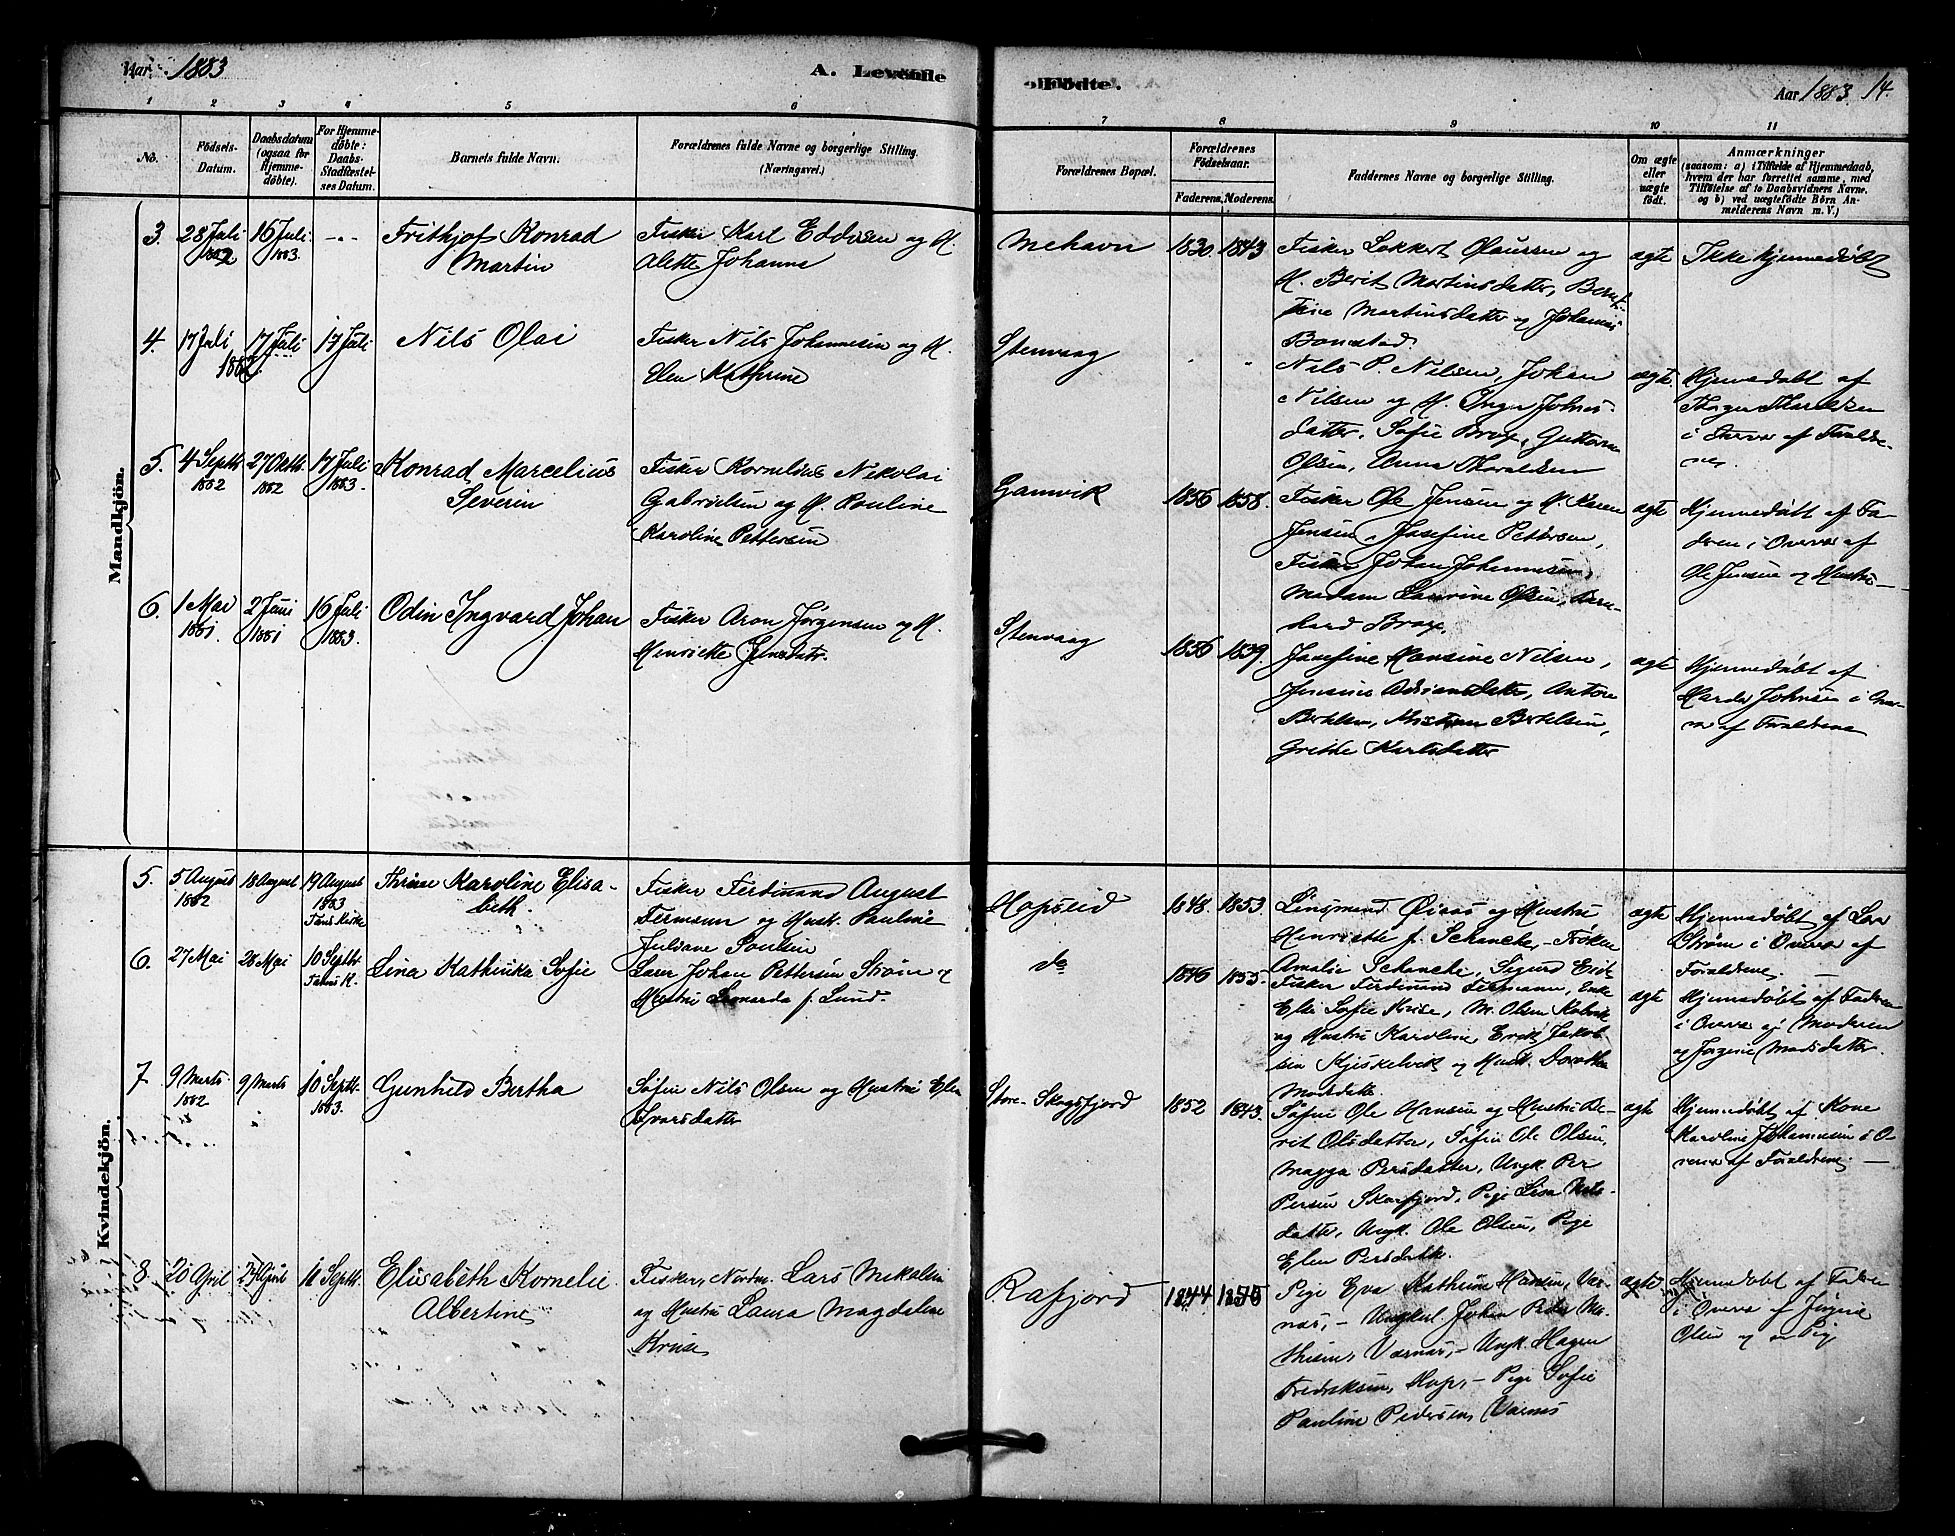 Aar 1883
A. Levende
Födte.
Aar 1883 14.
1 2 3 4 5 6
7 8 9 10 11
No.
Födsels-
Datum.
Daabsdatum
(ogsaa for
Hjemme-
döbte).
For Hjemme-
döbte:
Daabs-
Stadfæstel-
ses Datum.
Barnets fulde Navn.
Forældrenes fulde Navne og borgerlige Stilling.
(Næringsvei.)
Forældrenes Bopæl.
Forældrenes
Födselsaar.
Faderens. Moderens.
Faddernes Navne og borgerlige Stilling.
Om ægte
eller
uægte
födt.
Anmærkninger
(saasom: a) i Tilfælde af Hjemmedaab,
hvem der har forrettet samme, med
Tilföielse af to Daabsvidners Navne.
og b) ved uægtefödte Börn An-
melderens Navn m. V.)
Mandkjön.
3.
28 Juli
1882
16 Juli
1883.
-"-
Frithjof Konrad
Martin
Fisker Karl Eddisen og H.
Alette Johanna
Mehavn
1830. 1843
Fisker Lokkert Olaussen og
H. Berit Martinsdatter, Bernt-
sine Martinsdatter og Johannes
Bonstad.
ægte
Ikke hjemmedøbt
4.
17 Juli
1882
17 Juli
17 Juli
Nils Olai
Fisker Nils Johannesen og H.
Elen Kathrine
Stenvaag
Nils P. Nilsen, Johan
Nilsen og H. Inger Johns-
datter, Sofie Brox, Guttorm
Olsen, Anna Thoraldsen
ægte.
Hjemmedøbt af
i Overvær af Foreldre-
nes.
5.
4 Septb.
1882
27 Oktb.
1882
17 Juli
1883.
Konrad Marcelius
Severin
Fisker Kornelius Nikolai
Gabrielsen og H. Pauline
Karoline Pettersen
Gamvik
1856 1858.
Fisker Ole Jensen og H. Karen
Jensen, Josefine Pettersen,
Fisker Johan Johannesen,
Madam Laurine Olsen, Bern-
hard Brox.
ægte
Hjemmedøbt af Fa-
deren i Overvær af
Ole Jensen og Hustru-
6.
1 Mai
1881.
2 Juni
1881
16 Juli
1883.
Odin Ingvard Johan
Fisker Aron Jørgensen og H.
Henriette Jensdatr.
Stenvaag
1856 1859.
Josefine Hansine Nilsen,
Jensine Adriansdatter, Antone
Bertelsen, Kristian Bertelsen,
Grethe Karlsdatter
ægte
Hjemmedøbt af
Johnsen i Over-
vær af Foreldrene
Kvindekjön.
5.
5 August
1882
18 August
19 August
1883
Tans Kirke
Therese Karoline Elisa-
beth.
Fisker Ferdinand August
Fermann og Hust. Pauline
Juliane Poulsen
Hopseid
1848. 1853.
Linsmand Øiaas og Hustru
Henriette f. Schancke - Frøken
Amalie Schancke, Sigurd Eide
ægte
Hjemmedøbt af Lars
Strøm i Overvær af
Foreldrene.
6.
27 Mai
28 Mai
10 Septb.
Tans K.
Lina Kathinka Sofie
Johan Pettersen Strøm og
Hustru Leonarda f. Lund.
do
1846 1855.
Fisker Ferdinand Fermann, Enke
Else Sofie Krise, M. Olsen
og Hustru Karoline, Erik Jakob-
sen Kjeskelvik og Hust. Dorothea
Madsdatter.
ægte
Hjemmedøbt af Faderen
i Overvær af Moderen
og Jørgine Madsdatter.
7
9 Marts.
1882
9 Marts
10 Septb.
1883.
Gunhild Bertha
Søfin Nils Olsen og Hustru Elen
Ivarsdatter
Store-Skogsfjord
1852 1843.
Søfin Ole Hansen og Hustru Be-
rit Olsdatter, Søfin Ole Olsen,
Magga Persdatter, Ungk. Per
Persen Skoefjord, Pige Lisa Nils-
datter, Ungk. Ole Olsen, Pige
Elen Persdatter.
ægte
Hjemmedøbt af Kone
Karoline Johannesen i O-
vervær af Foreldrene. -
8
20 April
25 April
11 Septb.
Elisabeth Kornelie
Albertine
Fisker, Nordm. Lars Mikalsen
og Hustru Laura Magdalene
Krise
Rafjord
1844 1855
Pige Eva Kathrine Hansen, Vær-
næs, - Ungkarl. Johan Peder Ma-
thisen, Værnæs, - Ungk. Hagen
Fredriksen, Hop, - Pige Sofie
Pauline Pedersen, Værnes
ægte
Hjemmedøbt af Faderen
i Overvær af Jørgine
Olsen og en Pige